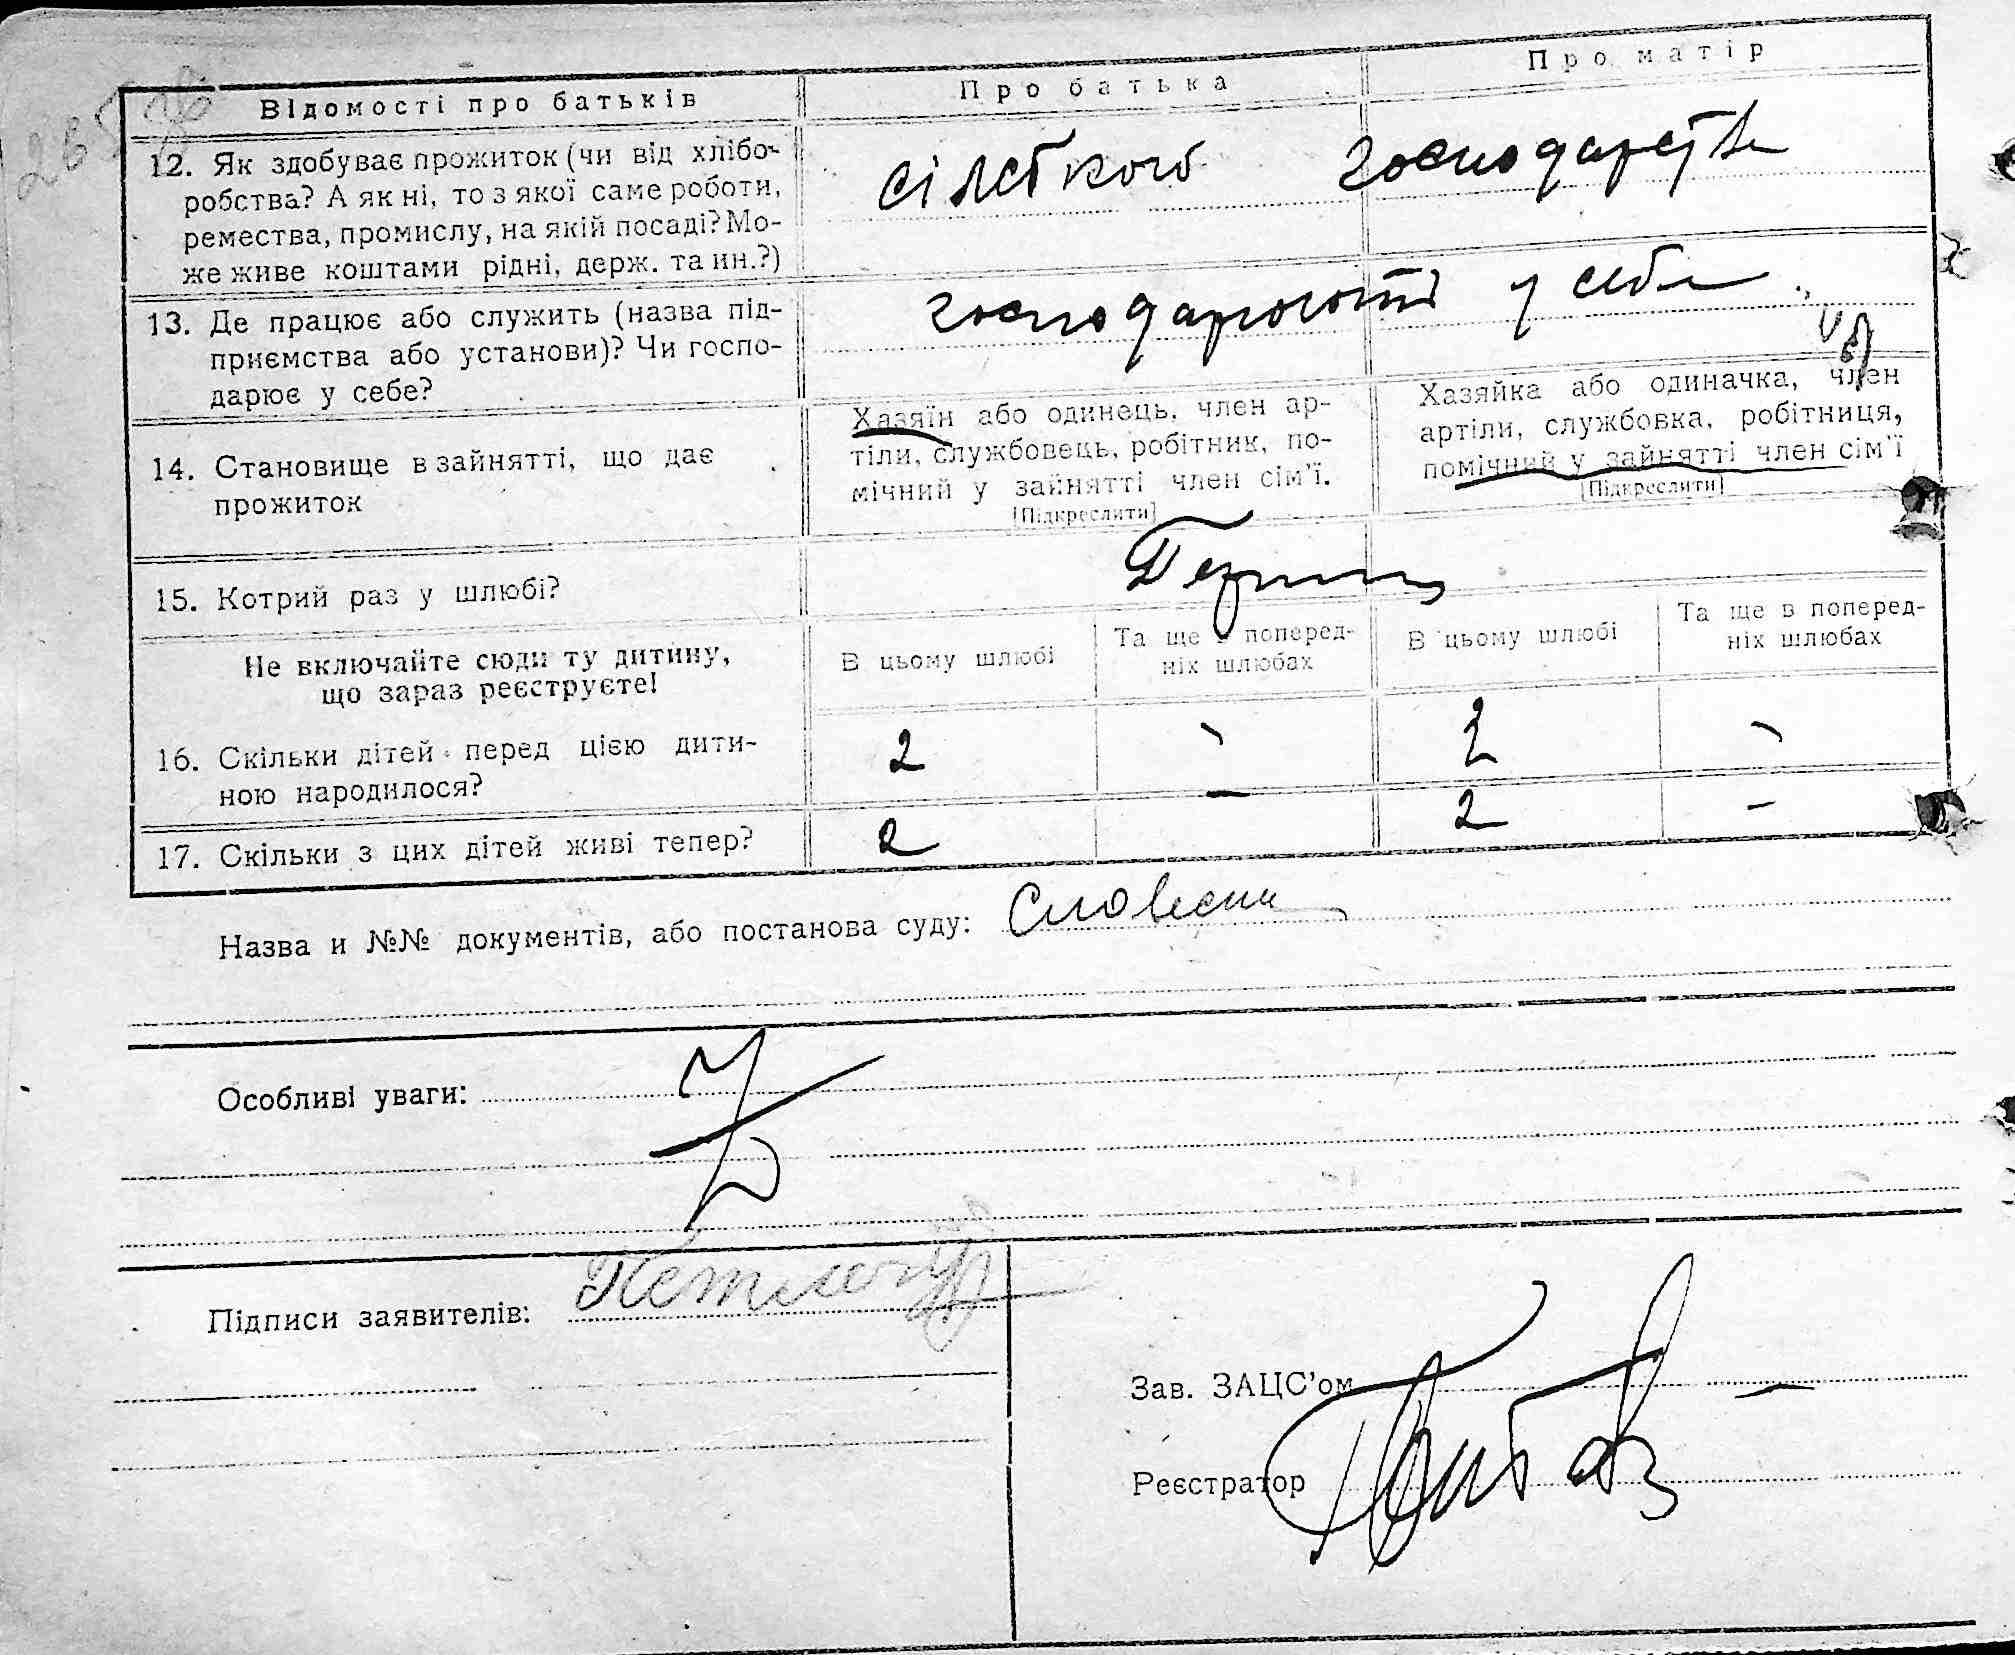 Відомості про батьків
Про батька
Про матір
12. Як здобуває прожиток (чи від хлібо-
робства? А як ні, то з якої саме роботи,
ремества, промислу, на якій посаді? Мо-
же живе коштами рідні, держ. та ин.?)
сілського господарства
13. Де працює або служить (назва під-
приємства або установи)? Чи госпо-
дарює у себе?
господарюють у себе
14. Становище в зайнятті, що дає
прожиток
Хазяїн або одинець, член ар-
тіли, службовець, робітник, по-
мічний у зайнятті член сім'ї.
[Підкреслити]
Хазяйка або одиначка, член
артіли, службовка, робітниця,
помічний у зайнятті член сім'ї
[Підкреслити]
15. Котрий раз у шлюбі?
Не включайте сюди ту дитину,
що зараз реєструєте!
В цьому шлюбі
Та ще в поперед-
ніх шлюбах
В цьому шлюбі
Та ще в поперед-
ніх шлюбах
16. Скільки дітей перед цією дити-
ною народилося?
2 - 2 -
17. Скільки з цих дітей живі тепер?
2 — 2 —
Назва и №№ документів, або постанова суду: Словесни
Особливі уваги:
Підписи заявителів:
Зав. ЗАЦС'ом —
Реєстратор